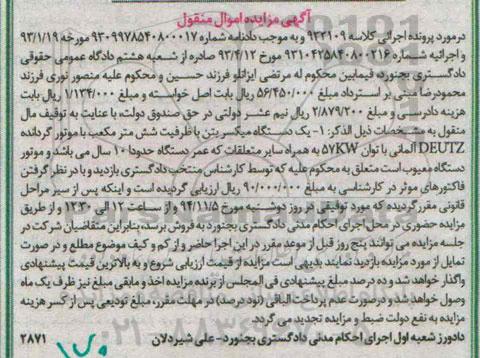 آگهی مزایده اموال منقول
درمورد پرونده اجرائی کلاسه ۹۳۳۱۰۹ و به موجب دادنامه شماره ۹۳۰۹۹۷۸۵۴۰۸۰۰۰۱۷ مورخه ۹۳/۱/۱۹
و اجرائیه شماره ۹۳۱۰۴۲۵۸۴۰۸۰۰۲۱۶ مورخ ۹۳/۴/۱۲ صادره از شعبه هشتم دادگاه عمومی حقوقی
دادگستری بجنورد، فیمابین محکوم له مرتضی ایزانلو فرزند حسین و محکوم علیه منصور نوری فرزند
محمودرضا مبنی بر استرداد مبلغ ۵۶/۴۵۰/۰۰۰ ریال بابت اصل خواسته و مبلغ ۱/۱۳۴/۰۰۰ ریال بابت
هزینه دادرسی و مبلغ ۲/۸۷۹/۲۰۰ ریال نیم عشر دولتی در حق صندوق دولت، با عنایت به توقیف مال
منقول به مشخصات ذیل الذکر: ۱- یک دستگاه میکسر بتن با ظرفیت شش متر مکعب با موتور گردانده
DEUTZ آلمانی با توان ۵۷KW به همراه سایر متعلقات که عمر دستگاه حدودا ۱۰ سال می باشد و موتور
دستگاه معیوب است متعلق به محکوم علیه که توسط کارشناس منتخب دادگستری بازدید و با در نظر گرفتن
فاکتورهای موثر در کارشناسی به مبلغ ۹۰/۰۰۰/۰۰۰ ریال ارزیابی گردیده است و اینکه پس از سیر مراحل
قانونی مقرر گردیده که مورد توقیفی در روز دوشنبه مورخ ۹۴/۱۱/۵ و از ساعت ۱۲ الی ۱۳:۳۰ و از طریق
مزایده حضوری در محل اجرای احکام مدنی دادگستری بجنورد به فروش برسد، بنابراین متقاضیان شرکت در
جلسه مزایده می توانند پنج روز قبل از موعد مقرر در این اجرا حاضر و از کم و کیف موضوع مطلع و در صورت
تمایل از مورد مزایده بازدید نمایند بدیهی است مزایده از قیمت ارزیابی شروع و به بالاترین قیمت پیشنهادی
واگذار خواهد شد و ده درصد مبلغ پیشنهادی فی المجلس از برنده مزایده اخذ و مابقی مبلغ نیز ظرف یک ماه
وصول خواهد شد و درصورت عدم پرداخت الباقی (نود درصد) در مهلت مقرر، مبلغ تودیعی پس از کسر هزینه
مزایده به نفع دولت ضبط و مزایده تجدید می گردد.
دادورز شعبه اول اجرای احکام مدنی دادگستری بجنورد- علی شیردلان ۲۸۷۱